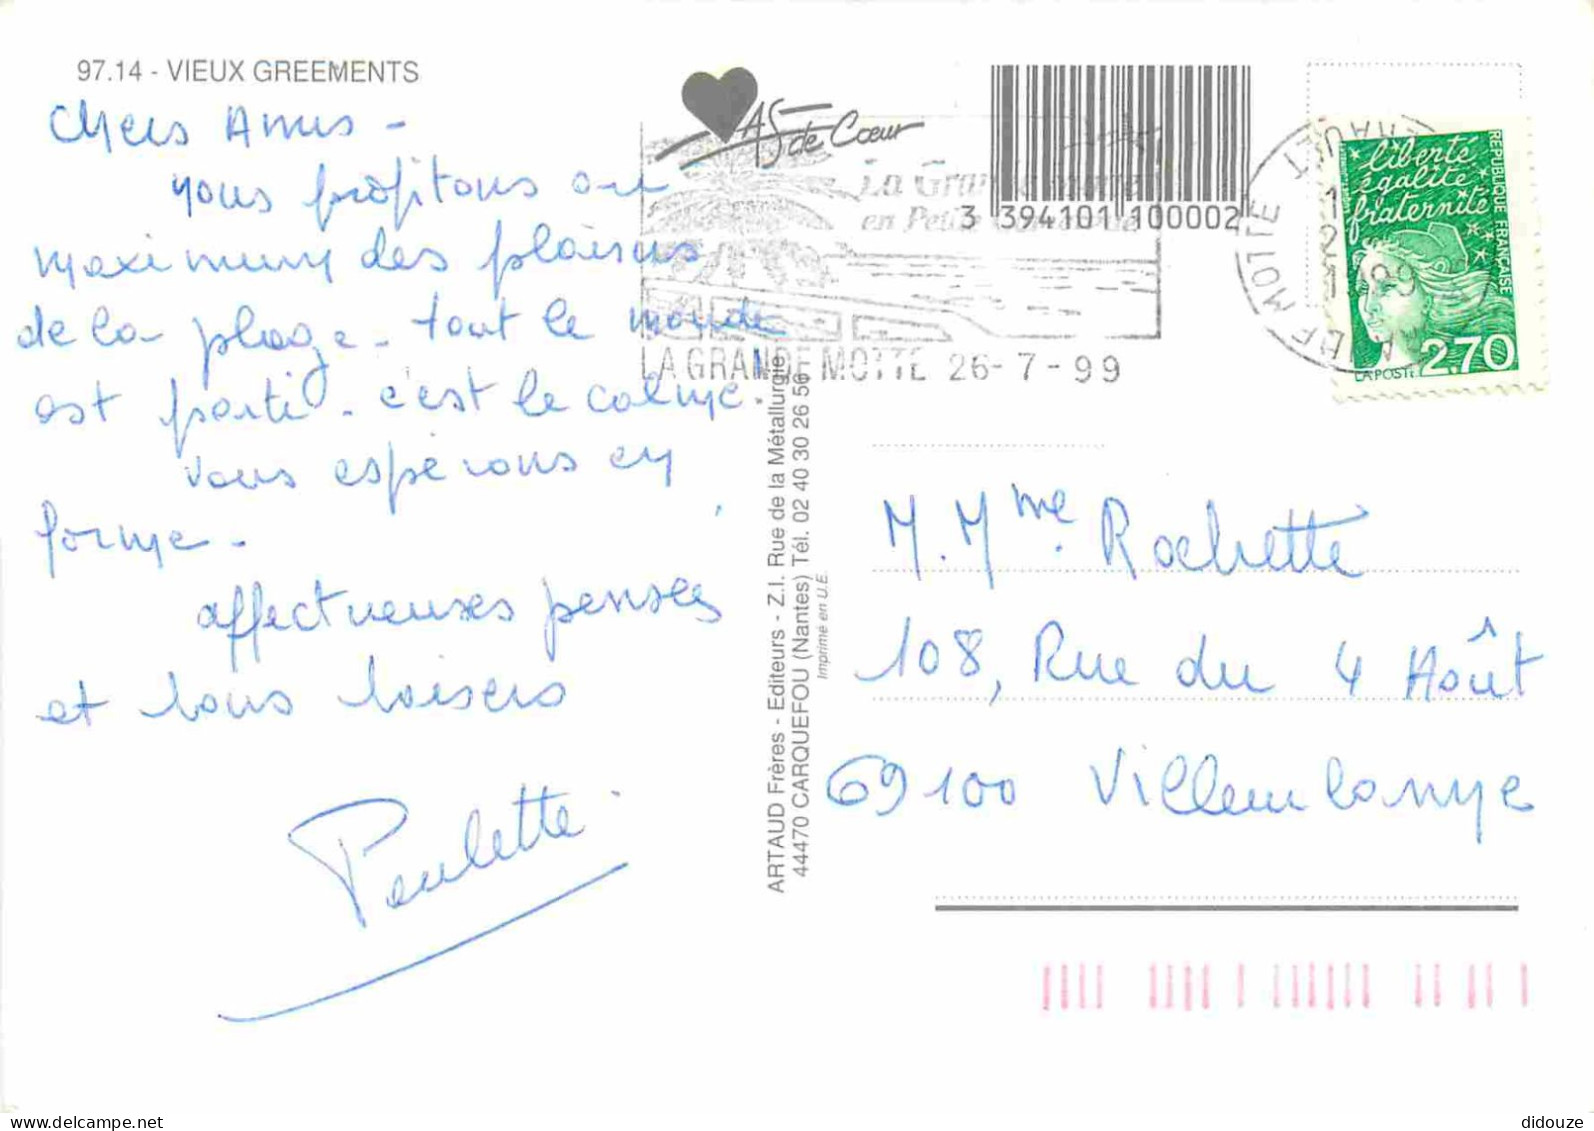 97.14 - VIEUX GREEMENTS
Chers Amis -
nous profitons au
maximum des plaisirs
de la plage - tout le monde
est parti - c'est le calme.
vous espérons en
forme -
affectueuses pensées
et bons baisers
Paulette
AS de Cœur
La Grande Motte
en Petite Camargue
LA GRANDE MOTTE 26-7-99
3 394101 100002
LA GDE MOTTE HERAULT
liberté
égalité
fraternité
REPUBLIQUE FRANÇAISE
LA POSTE 2,70
ARTAUD Frères - Editeurs - Z.I. Rue de la Métallurgie
44470 CARQUEFOU (Nantes) Tél. 02 40 30 26 56
Imprimé en U.E.
M. Mme. Rochette
108, Rue du 4 Août
69100 Villeurbanne
didouze